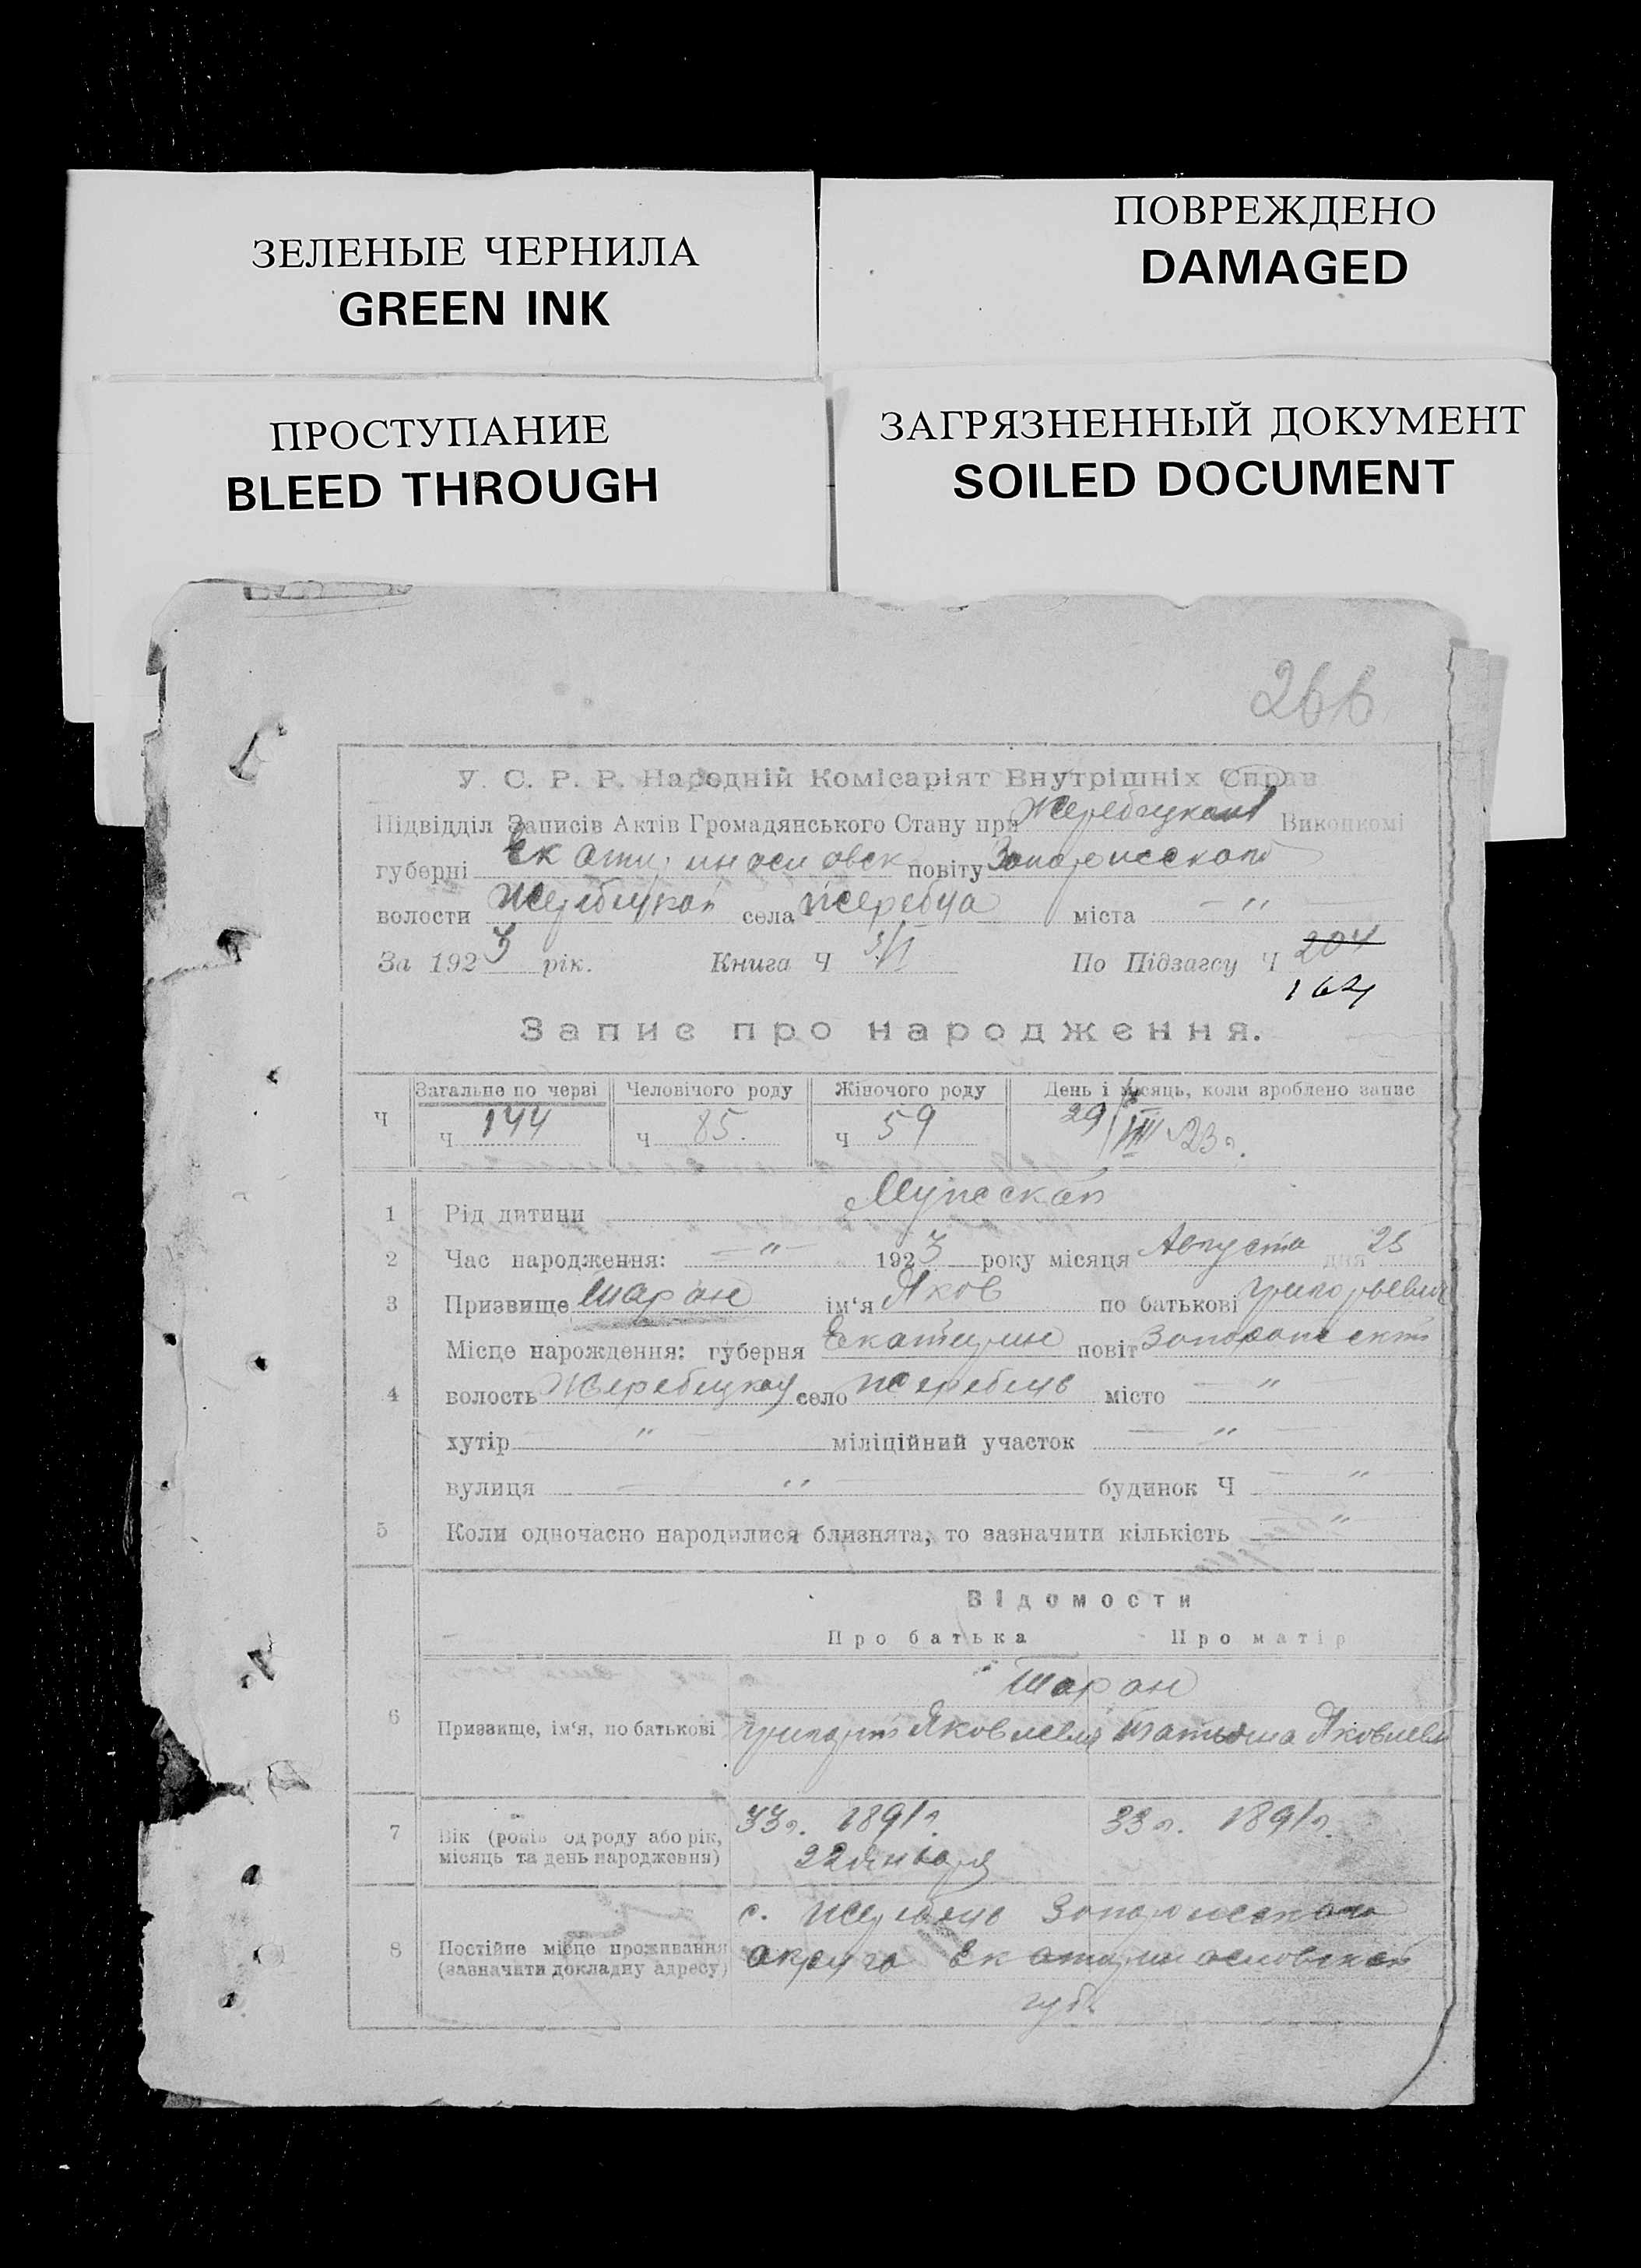 ЗЕЛЕНЫЕ ЧЕРНИЛА
GREEN INK
ПОВРЕЖДЕНО
DAMAGED
ПРОСТУПАНИЕ
BLEED THROUGH
ЗАГРЯЗНЕННЫЙ ДОКУМЕНТ
SOILED DOCUMENT
266
У. С. Р. Р. Народній Комісаріят Внутрішніх Справ
Підвідділ Записів Актів Громадянського Стану при Виконкомі
губерні Екатериносл овск повіту Запорожского
волости Жеребецкой села Жеребца міста — " —
За 1923 рік. Книга Ч По Підзагсу Ч 204
164
Запис про народження.
Ч Загальне по черзі Человічого роду Жіночого роду День і місяць, коли зроблено запис
Ч 144 Ч 85. Ч 59 29/VIII 23 г.
1 Рід дитини Мужской
2 Час народження: — " — 1923 року місяця Августа дня 25
3 Призвище Шаран ім'я Яков по батькові Григорьевич
Місце нарождення: губерня Екатерин повіт Запорожский
4 волость Жеребецкая село Жеребець місто — " —
хутір — " — міліційний участок — " —
вулиця — " — будинок Ч — " —
5 Коли одночасно народилися близнята, то зазначити кількість — " —
Відомости
Про батька Про матір
Шаран
6 Призвище, ім'я, по батькові Григорий Яковлевич Татьяна Яковлевн
7 Вік (років од роду або рік, місяць та день народження) 33 г. 1891 г. 33 г. 1891 г.
22 января
8 Постійне місце проживання (зазначити докладну адресу) с. Жеребець Запорожского
округа Екатеринославской
губ.